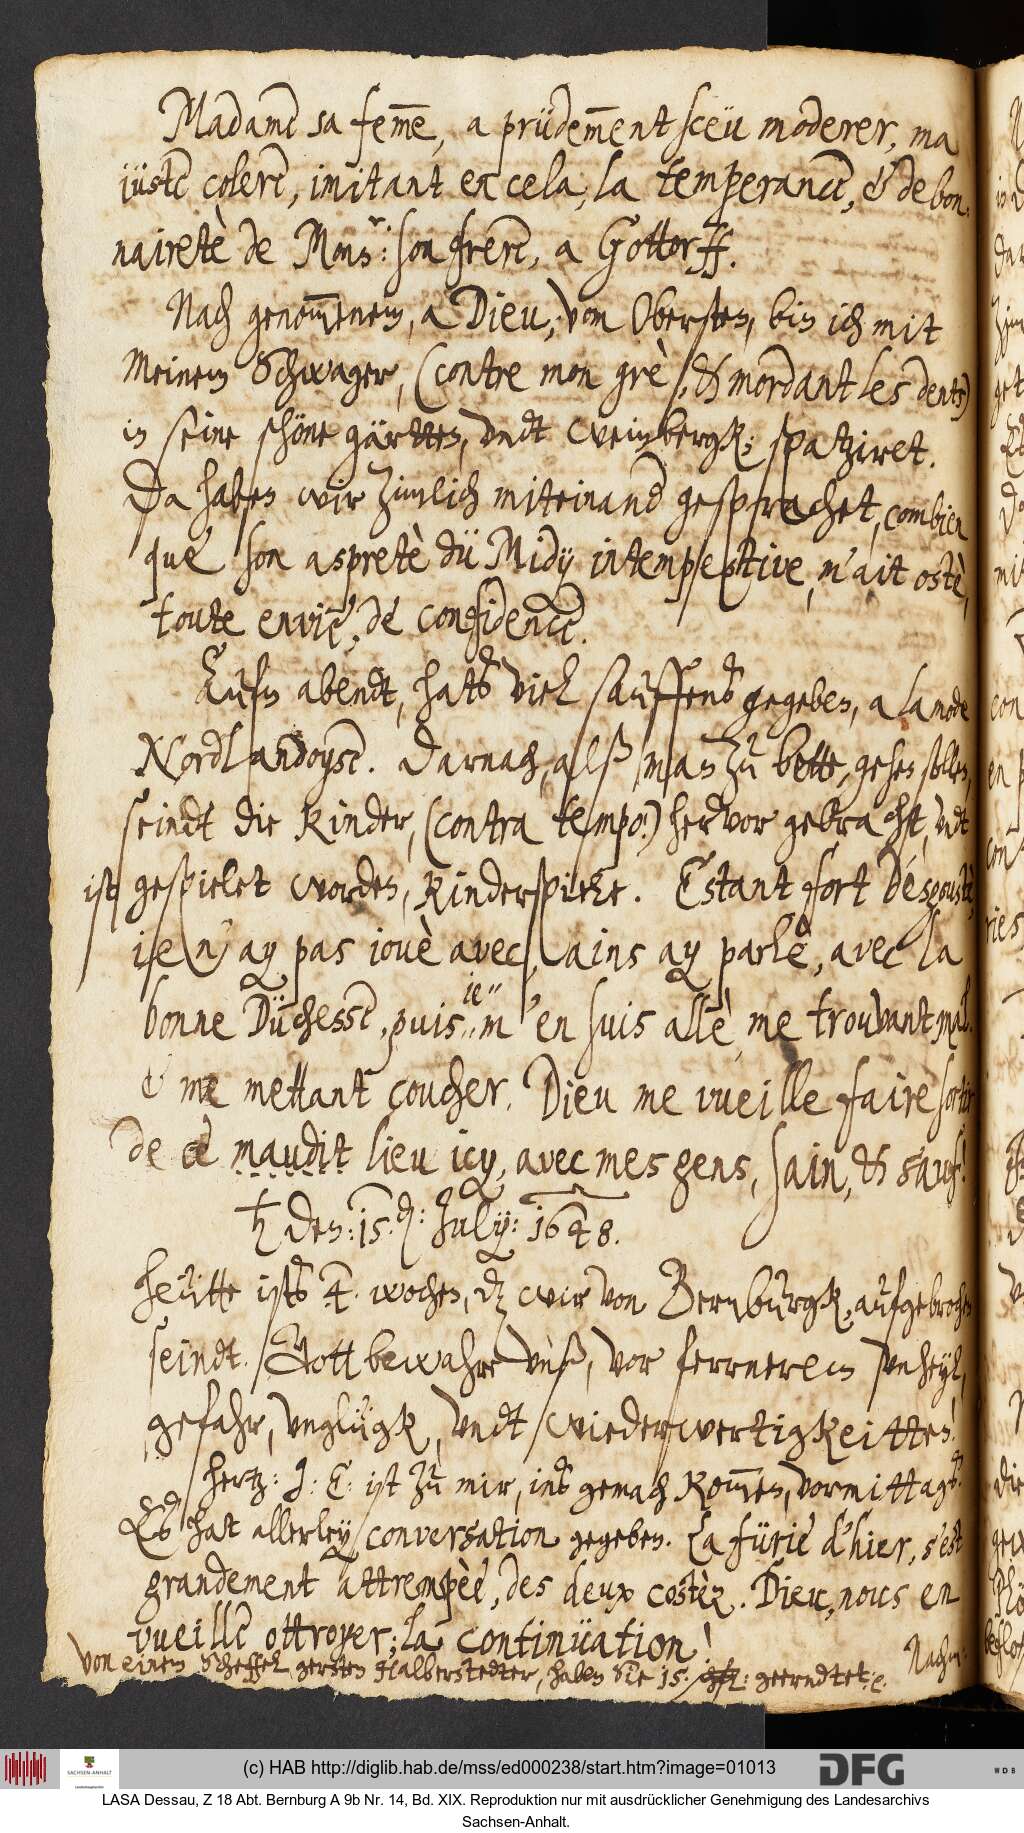 Madame sa fem̅e, a prüdem̅ent sceu moderer, ma
jüste colere, imitant en cela, la temperance, & debon-
naireté de Mons:r son frere, a Gottorff.
Nach genom̅enem, a Dieu, vom Obersten, bin ich mit
Meinem Schwager, (contre mon grè, & mordant les dents)
in seine schöne gärtten, vndt weinbergk: spatziret.
Da haben wir zimlich miteinand gesprachet, combien
que son aspretè dü Midy intempestive, m'ait ostè,
toute envie, de confidence.
Aufn abendt, hats viel sauffens gegeben, a la mode
Nordlandoyse. Darnach, alß man zu bette, gehen sollen,
seindt die Kinder, (contra tempo:) hervor gebracht, vndt
ist gespielet worden, Kinderspiele. Estant fort desgoustè,
je n'ay pas jouè avec, ains ay parlè, avec la
bonne Düchesse, puis je m'en suis allè, me trouvant mal.
& me mettant coucher. Dieu me vueille faire sortir
de ce maudit lieu icy, avec mes gens, sain, & sauf!
♄ den: 15. d: July: 1648.
Heütte ists 4. wochen, dz wir von Bernburgk, aufgebrochen
seindt. Gott bewahre vnß, vor fernerem vnheyl,
gefahr, vnglügk, vndt wiederwertigkeitten!
Hertz: J: E: ist zu mir, ins gemach kom̅en, vormittags.
Es hat allerley conversation gegeben. La fürie d'hier, s'est
grandement attrempèe, des deux costèz. Dieu, nous en
vueille ottroyer, la continüation!
Von einem Scheffel gersten Halberstedter, haben Sie 15. geerndtet: e.
(c) HAB http://diglib.hab.de/mss/ed000238/start.htm?image=01013
SACHSEN-ANHALT
DFG
WDB
LASA Dessau, Z 18 Abt. Bernburg A 9b Nr. 14, Bd. XIX. Reproduktion nur mit ausdrücklicher Genehmigung des Landesarchivs
Sachsen-Anhalt.